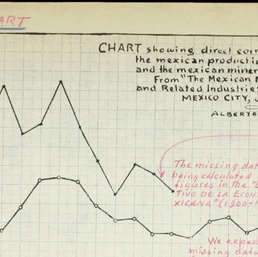 ART
CHART showing direct
the mexican
and the mexican
From "The Mexican
and Related Industries
MEXICO CITY,
ALBERTO
The missing
being calculated
figures in the
TIVO DE LA
XICANA" (1900-1
We
missing